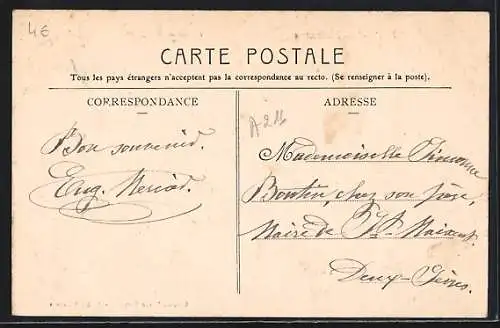 4€
CARTE POSTALE
Tous les pays étrangers n'acceptent pas la correspondance au recto. (Se renseigner à la poste).
CORRESPONDANCE
ADRESSE
A 211
Bon souvenir.
Eug.
Mademoiselle Simonne
chez son père,
Maire de St-Maixent
Deux-Sèvres.